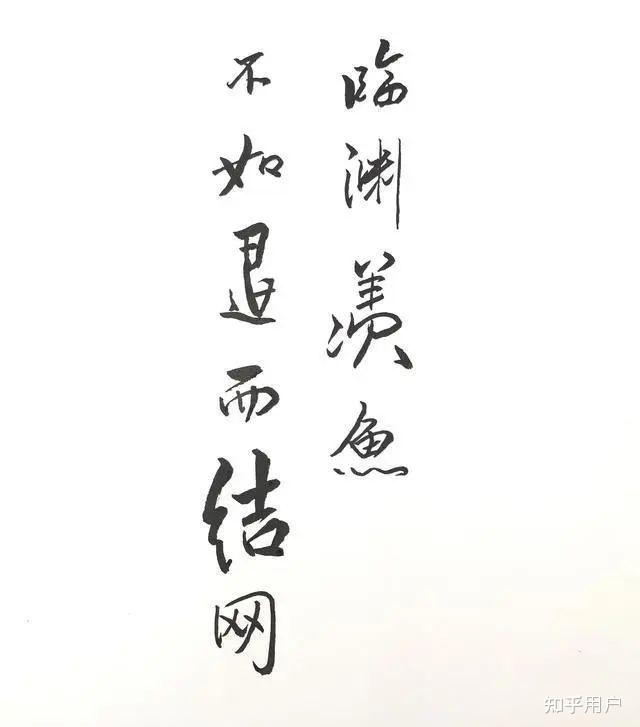 临渊羡鱼
不如退而结网
知乎用户